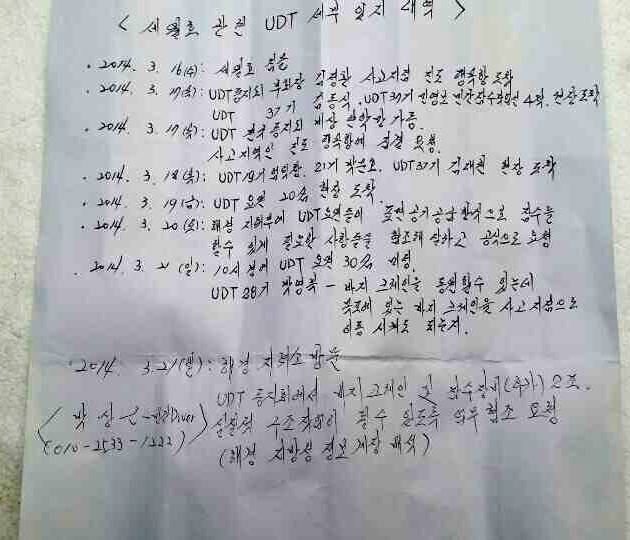 < 세월호 관련 UDT 세부 일지 내역 >
· 2014. 3. 16(수): 세월호 침몰
· 2014. 3. 17(목): UDT동지회 부회장 김명관 사고지점 진도 팽목항 도착
UDT 37기 김동식. UDT37기 민간잠수사 4명. 현장 도착
· 2014. 3. 17(목): UDT 전국 동지회 비상 연락망 가동.
사고지역인 진도 팽목항에 집결 요청.
· 2014. 3. 18(목): UDT 21기 UDT37기 김재현 현장 도착
· 2014. 3. 19(금): UDT 요원 20명 현장 도착
· 2014. 3. 20(토): 해경 지휘부에 UDT요원들이 표면공기공급방식으로 잠수를
할수 있게 필요한 사항들을 협조해 달라고 공식으로 요청
· 2014. 3. 21(일): 10시경에 UDT 요원 30명
UDT 28기 박영복 - 바지 크레인을 동원할수 있는데
목포에 있는 바지 크레인을 사고지점으로
이동 시켜도 되는지.
· 2014. 3. 21(일): 해경 지휘소 방문
UDT 동지회에서 바지 크레인 및 잠수장비(추가)
< 박상 Diver > 실질적 구조작업이 될수 있도록 업무협조 요청
(010-2533-1222) (해경 지방청 정보계장 배석)